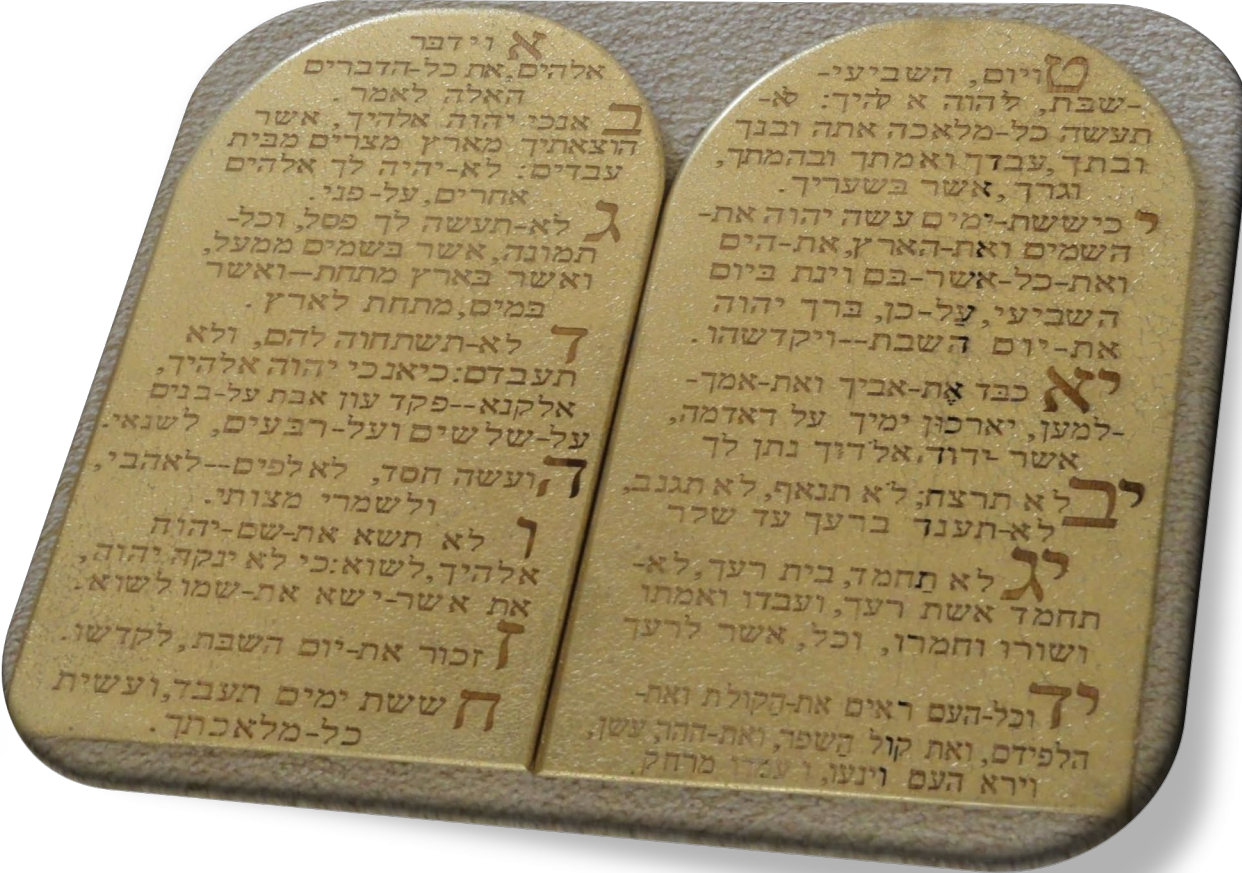 א וידבר
אלהים,את כל-הדברים
האלה לאמר.
ב אנכי יהוה אלהיך, אשר
הוצאתיך מארץ מצרים מבית
עבדים: לא-יהיה לך אלהים
אחרים,על-פני.
ג לא-תעשה לך פסל, וכל-
תמונה,אשר בשמים ממעל,
ואשר בארץ מתחת--ואשר
במים,מתחת לארץ.
ד לא-תשתחוה להם, ולא
תעבדם:כיאנכי יהוה אלהיך,
אלקנא--פקד עון אבת על-בנים
על-שלשים ועל-רבעים, לשנאי.
ה ועשה חסד, לאלפים--לאהבי,
ולשמרי מצותי.
ו לא תשא את-שם-יהוה
אלהיך,לשוא:כי לא ינקה,יהוה,
את אשר-ישא את-שמו לשוא.
ז זכור את-יום השבת,לקדשו.
ח ששת ימים תעבד,ועשית
כל-מלאכתך.
ט ויום, השביעי-
-שבת, ליהוה א להיך: לא-
תעשה כל-מלאכה אתה ובנך
ובתך,עבדך ואמתך ובהמתך,
וגרך,אשר בשעריך.
י כיששת-ימים עשה יהוה את-
השמים ואת-הארץ,את-הים
ואת-כל-אשר-בם וינת ביום
השביעי,על-כן, ברך יהוה
את-יום השבת--ויקדשהו.
יא כבד את-אביך ואת-אמך-
-למען, יארכון ימיך על דאדמה,
אשר ידוד,אלדוך נתן לך
יב לא תרצח; לא תנאף, לא תגנב,
לא-תענד ברעך עד שלר
יג לא תחמד, בית רעך, לא-
תחמד אשת רעך,ועבדו ואמתו
ושורו וחמרו, וכל, אשר לרעך
יד וכל-העם ראים את-הקולת ואת-
הלפידם, ואת קול השפר, ואת-ההר, עשן,
וירא העם וינעו, ועמדו מרחק.